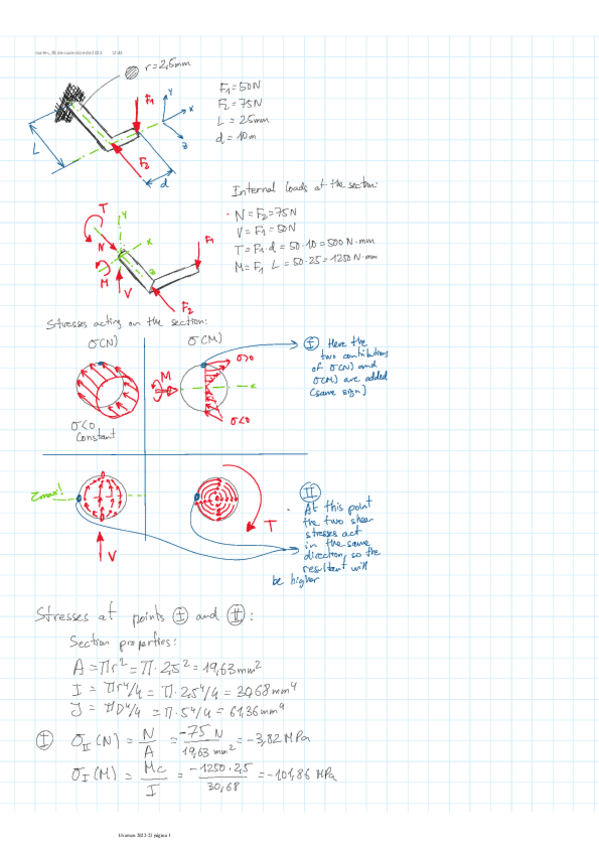 r=2,5mm
F1=50N
F2=75N
L=25mm
d=10m
F1
Y
X
Z
L
F2
d
Internal loads at the section:
N=F2=75N
V=F1=50N
T=F1·d=50·10=500N·mm
M=F1 L=50·25=1250N·mm
T
Y
N
X
F1
M
V
Z
F2
Stresses acting on the section:
σ(N)
σ<0
Constant
σ(M)
σ>0
M
X
σ<0
I Here the
two contributions
of σ(N) and
σ(M) are added
(same sign)
τmax!
V
T
II
At this point
the two shear
stresses act
in the same
direction, so the
resultant will
be higher
Stresses at points I and II:
Section properties:
A=πr²=π·2,5²=19,63mm²
I=πr⁴/4=π·2,5⁴/4=30,68mm⁴
J=πD⁴/4=π·5⁴/4=61,36mm⁴
I σII(N)=N/A=-75N/19,63mm²=-3,82MPa
σI(M)=Mc/I=-1250·2,5/30,68=-101,86 MPa
página 1